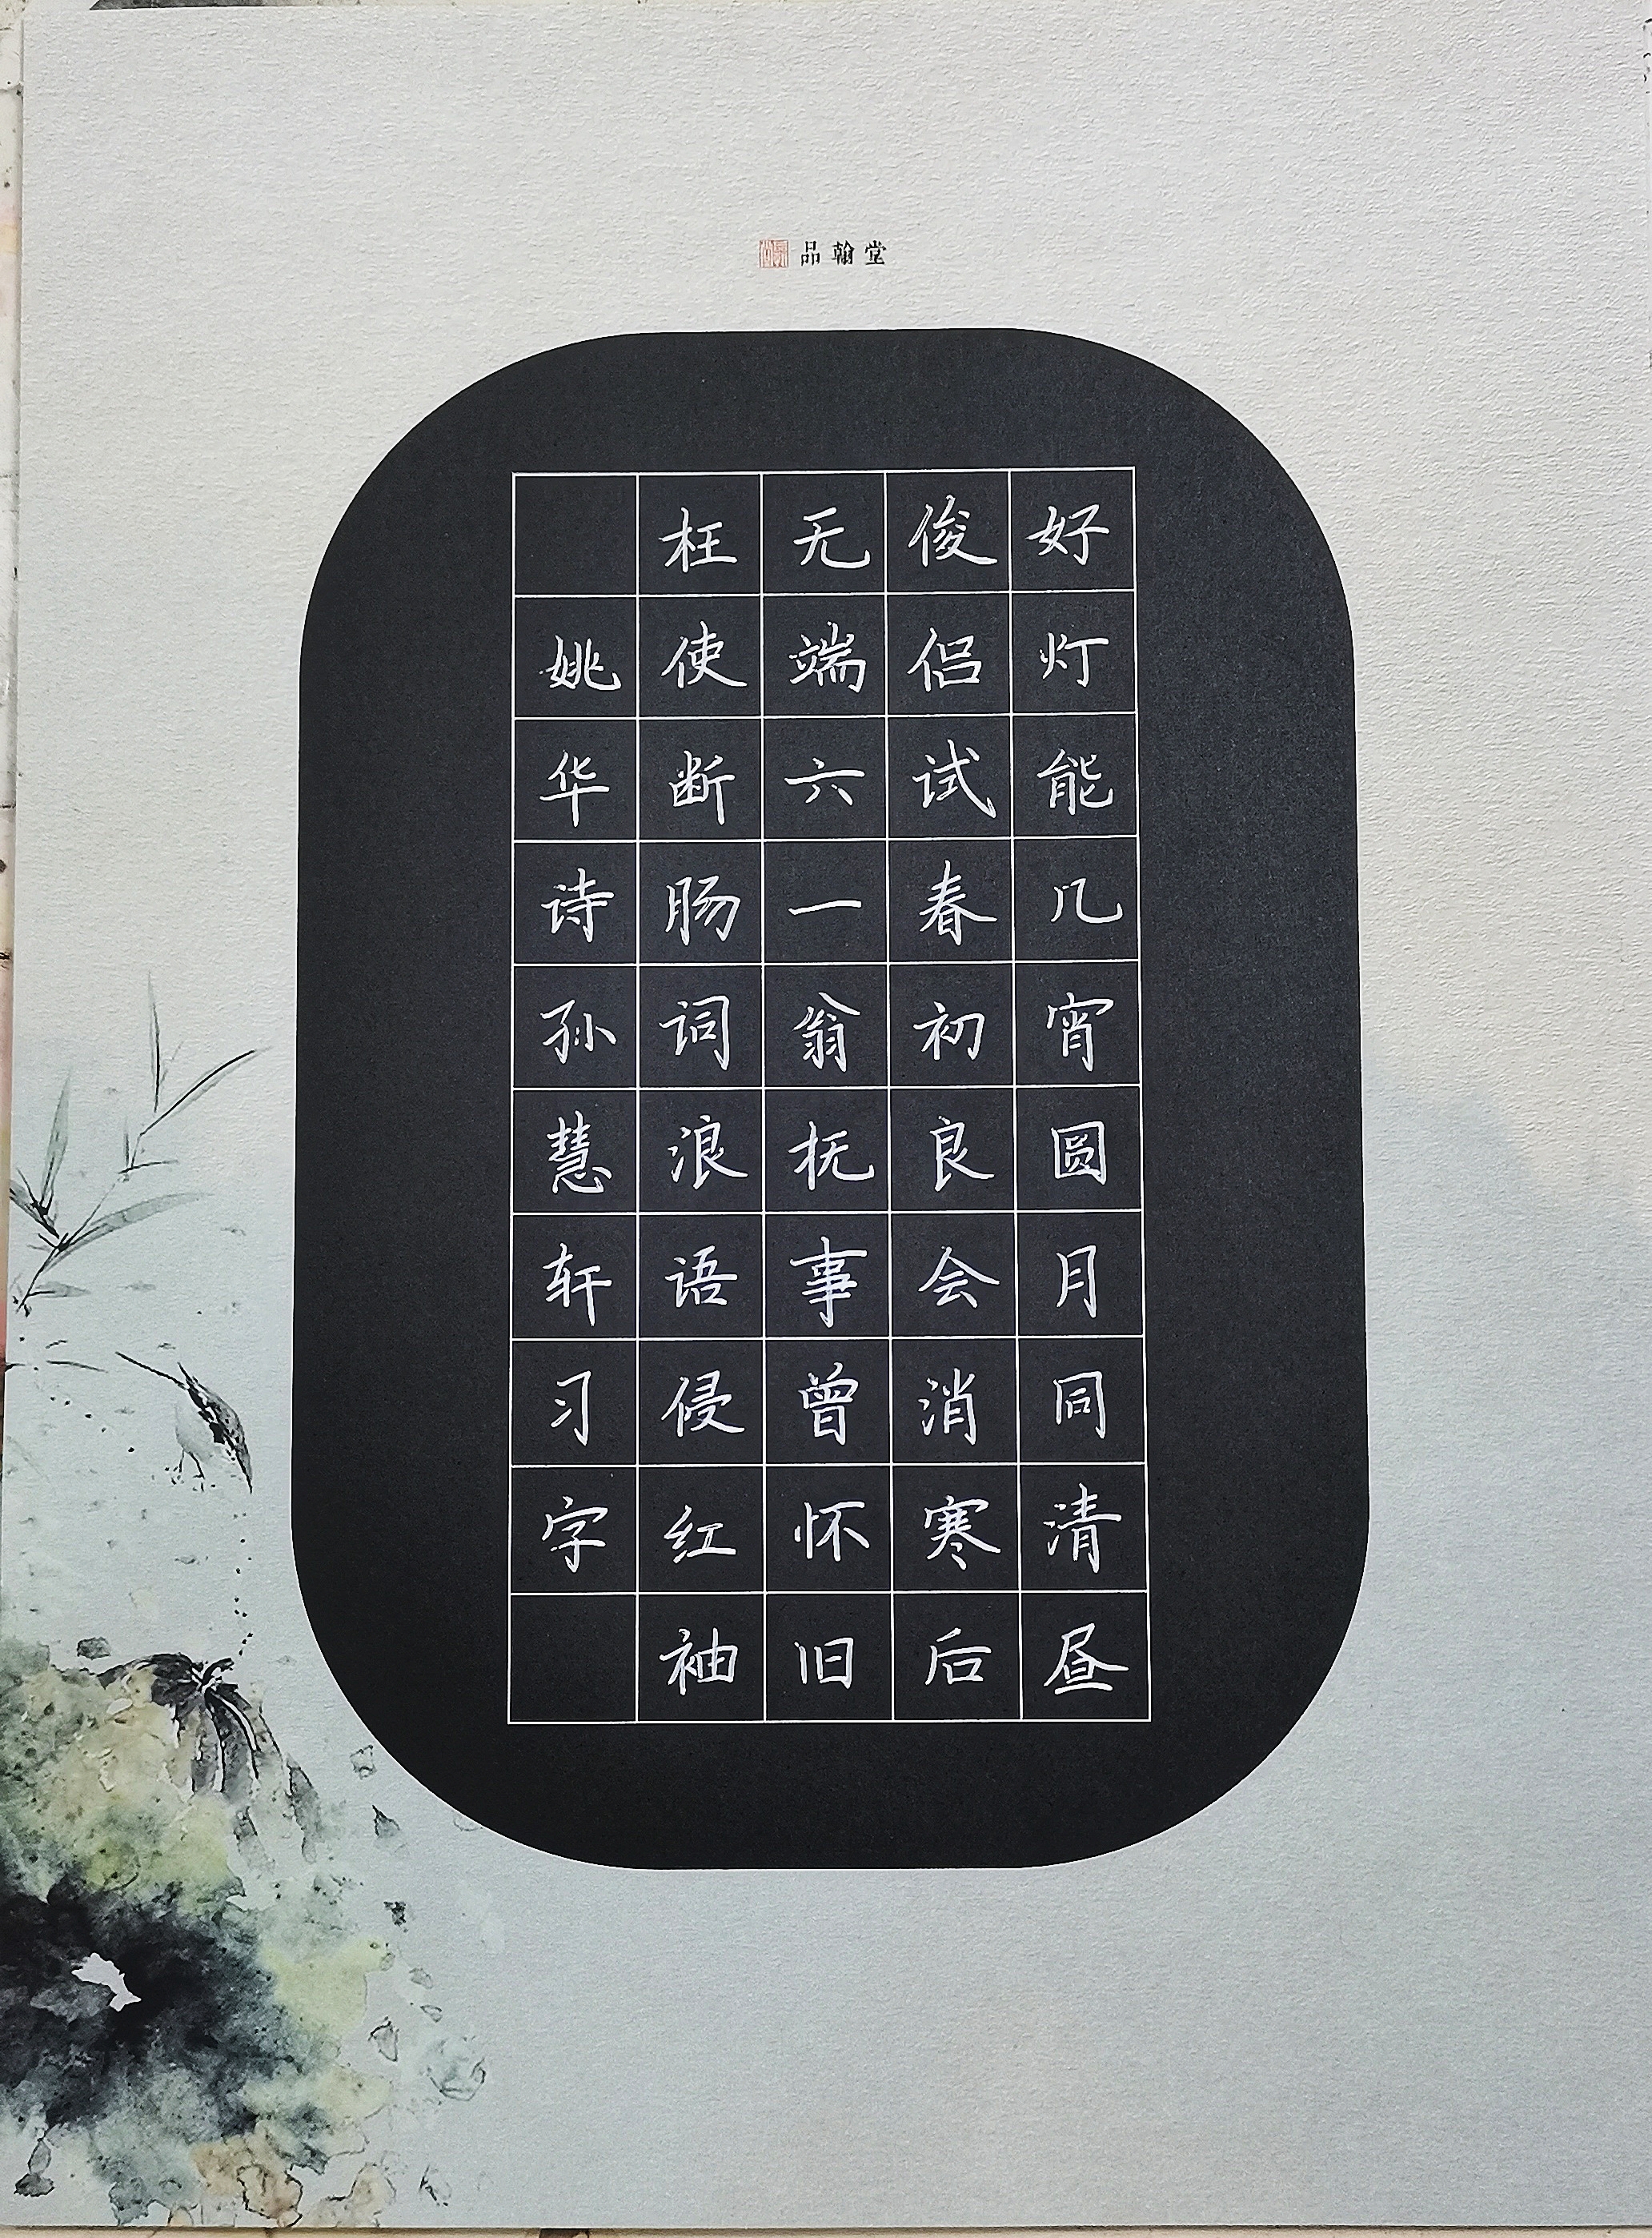 品翰堂
好灯能几宵圆月同清昼
俊侣试春初良会消寒后
无端六一翁抚事曾怀旧
枉使断肠词浪语侵红袖
姚华诗孙慧轩习字